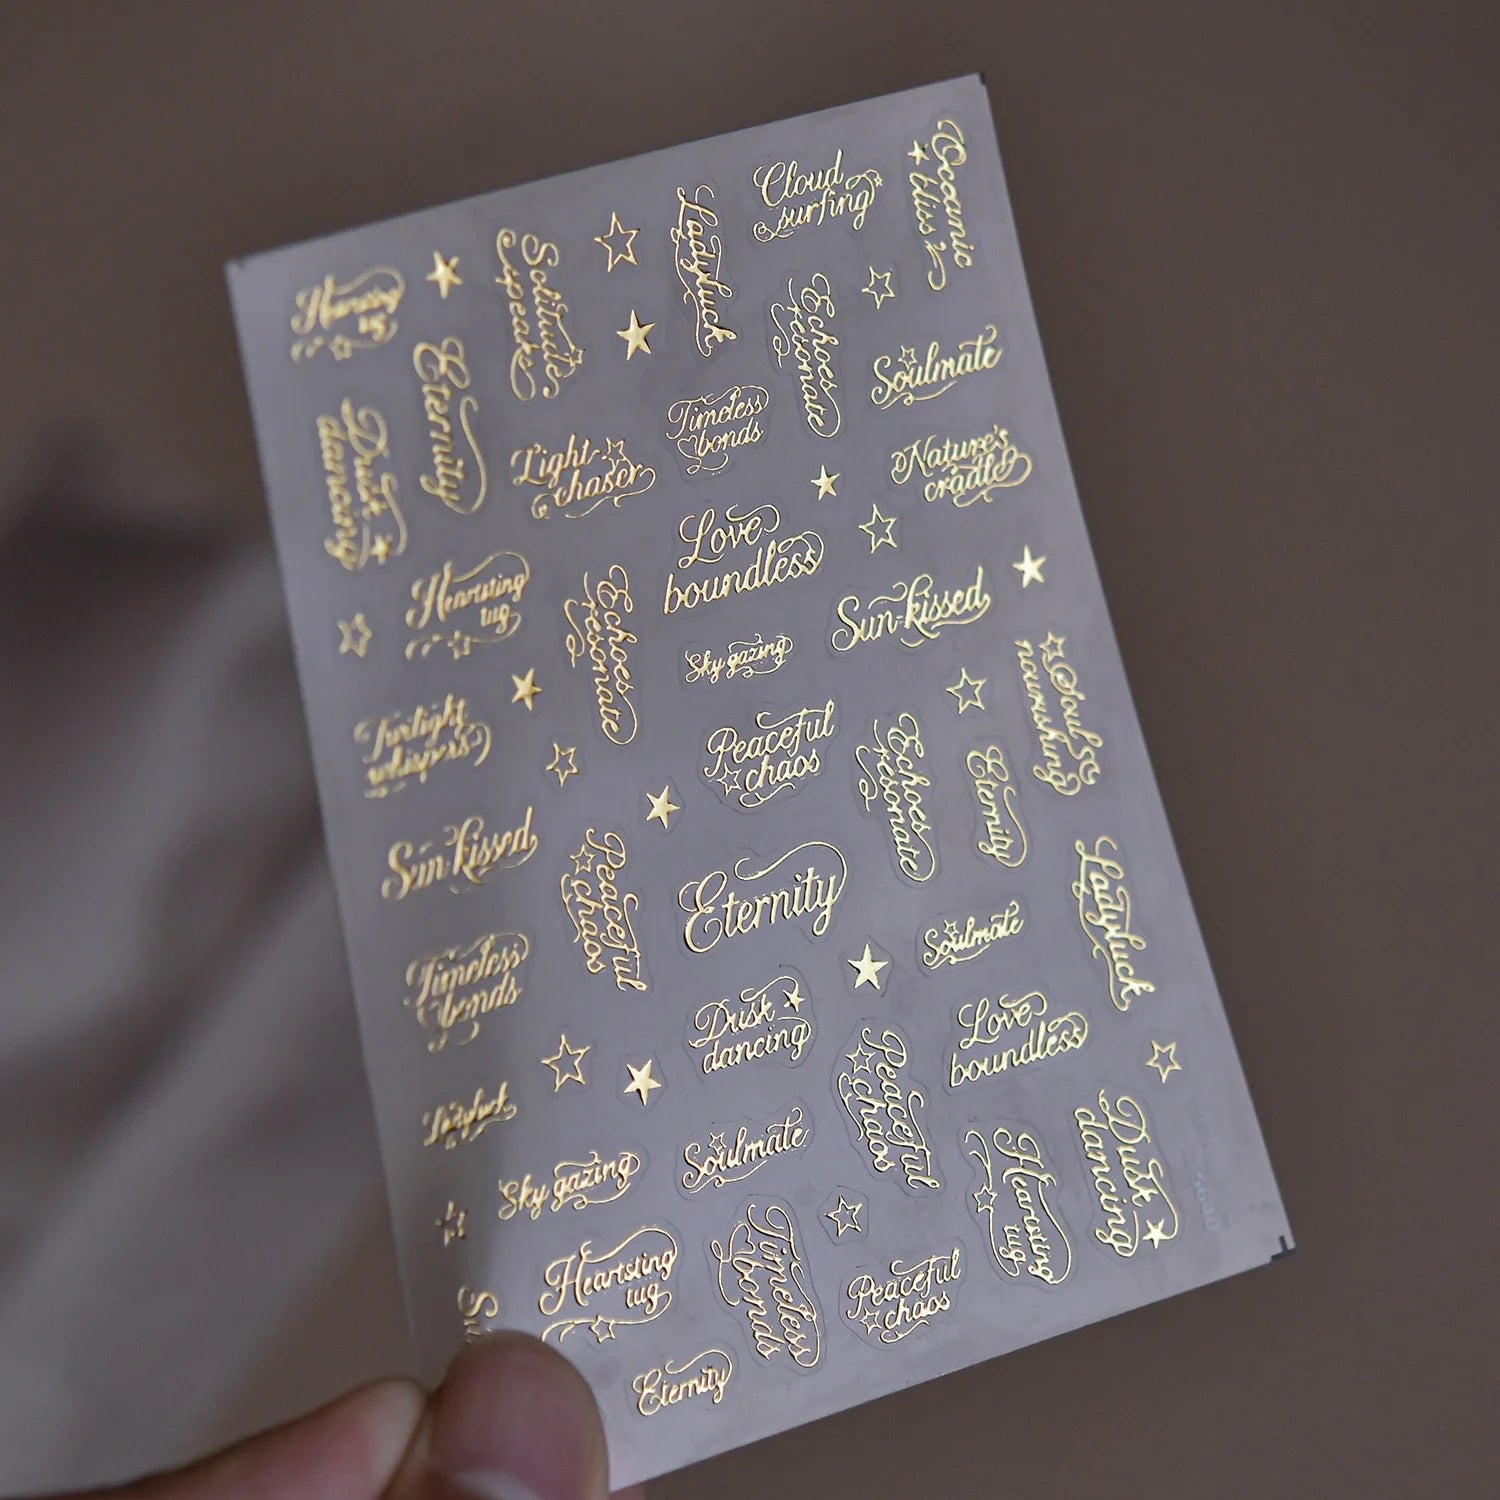 Cloud
surfing
Oceanic
bliss
Ladyluck
Solitude
speaks
Heartstring
tug
Echoes
resonate
Eternity
Soulmate
Timeless
bonds
Dusk
dancing
Light
chaser
Nature's
cradle
Love
boundless
Heartstring
tug
Echoes
resonate
Sun-kissed
Sky gazing
Soul
nourishing
Twilight
whispers
Peaceful
chaos
Echoes
resonate
Eternity
Sun-kissed
Peaceful
chaos
Eternity
Ladyluck
Soulmate
Timeless
bonds
Dusk
dancing
Love
boundless
Peaceful
chaos
Ladyluck
Soulmate
Dusk
dancing
Heartsting
tug
Sky gazing
Heartsting
tug
Timeless
bonds
Peaceful
chaos
Eternity